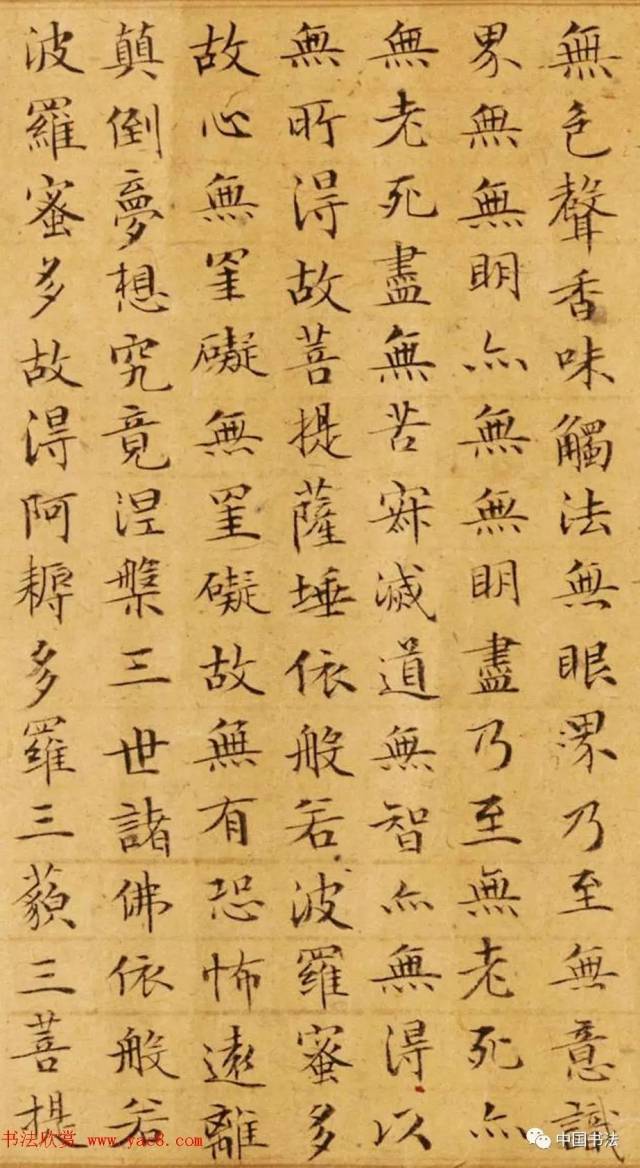 無色聲香味觸法無眼界乃至無意識
界無無明亦無無明盡乃至無老死亦
無老死盡無苦寂滅道無智亦無得以
無所得故菩提薩埵依般若波羅蜜多
故心無罣礙無罣礙故無有恐怖遠離
顛倒夢想究竟涅槃三世諸佛依般若
波羅蜜多故得阿耨多羅三藐三菩提
书法欣赏 www.yac8.com
中国书法